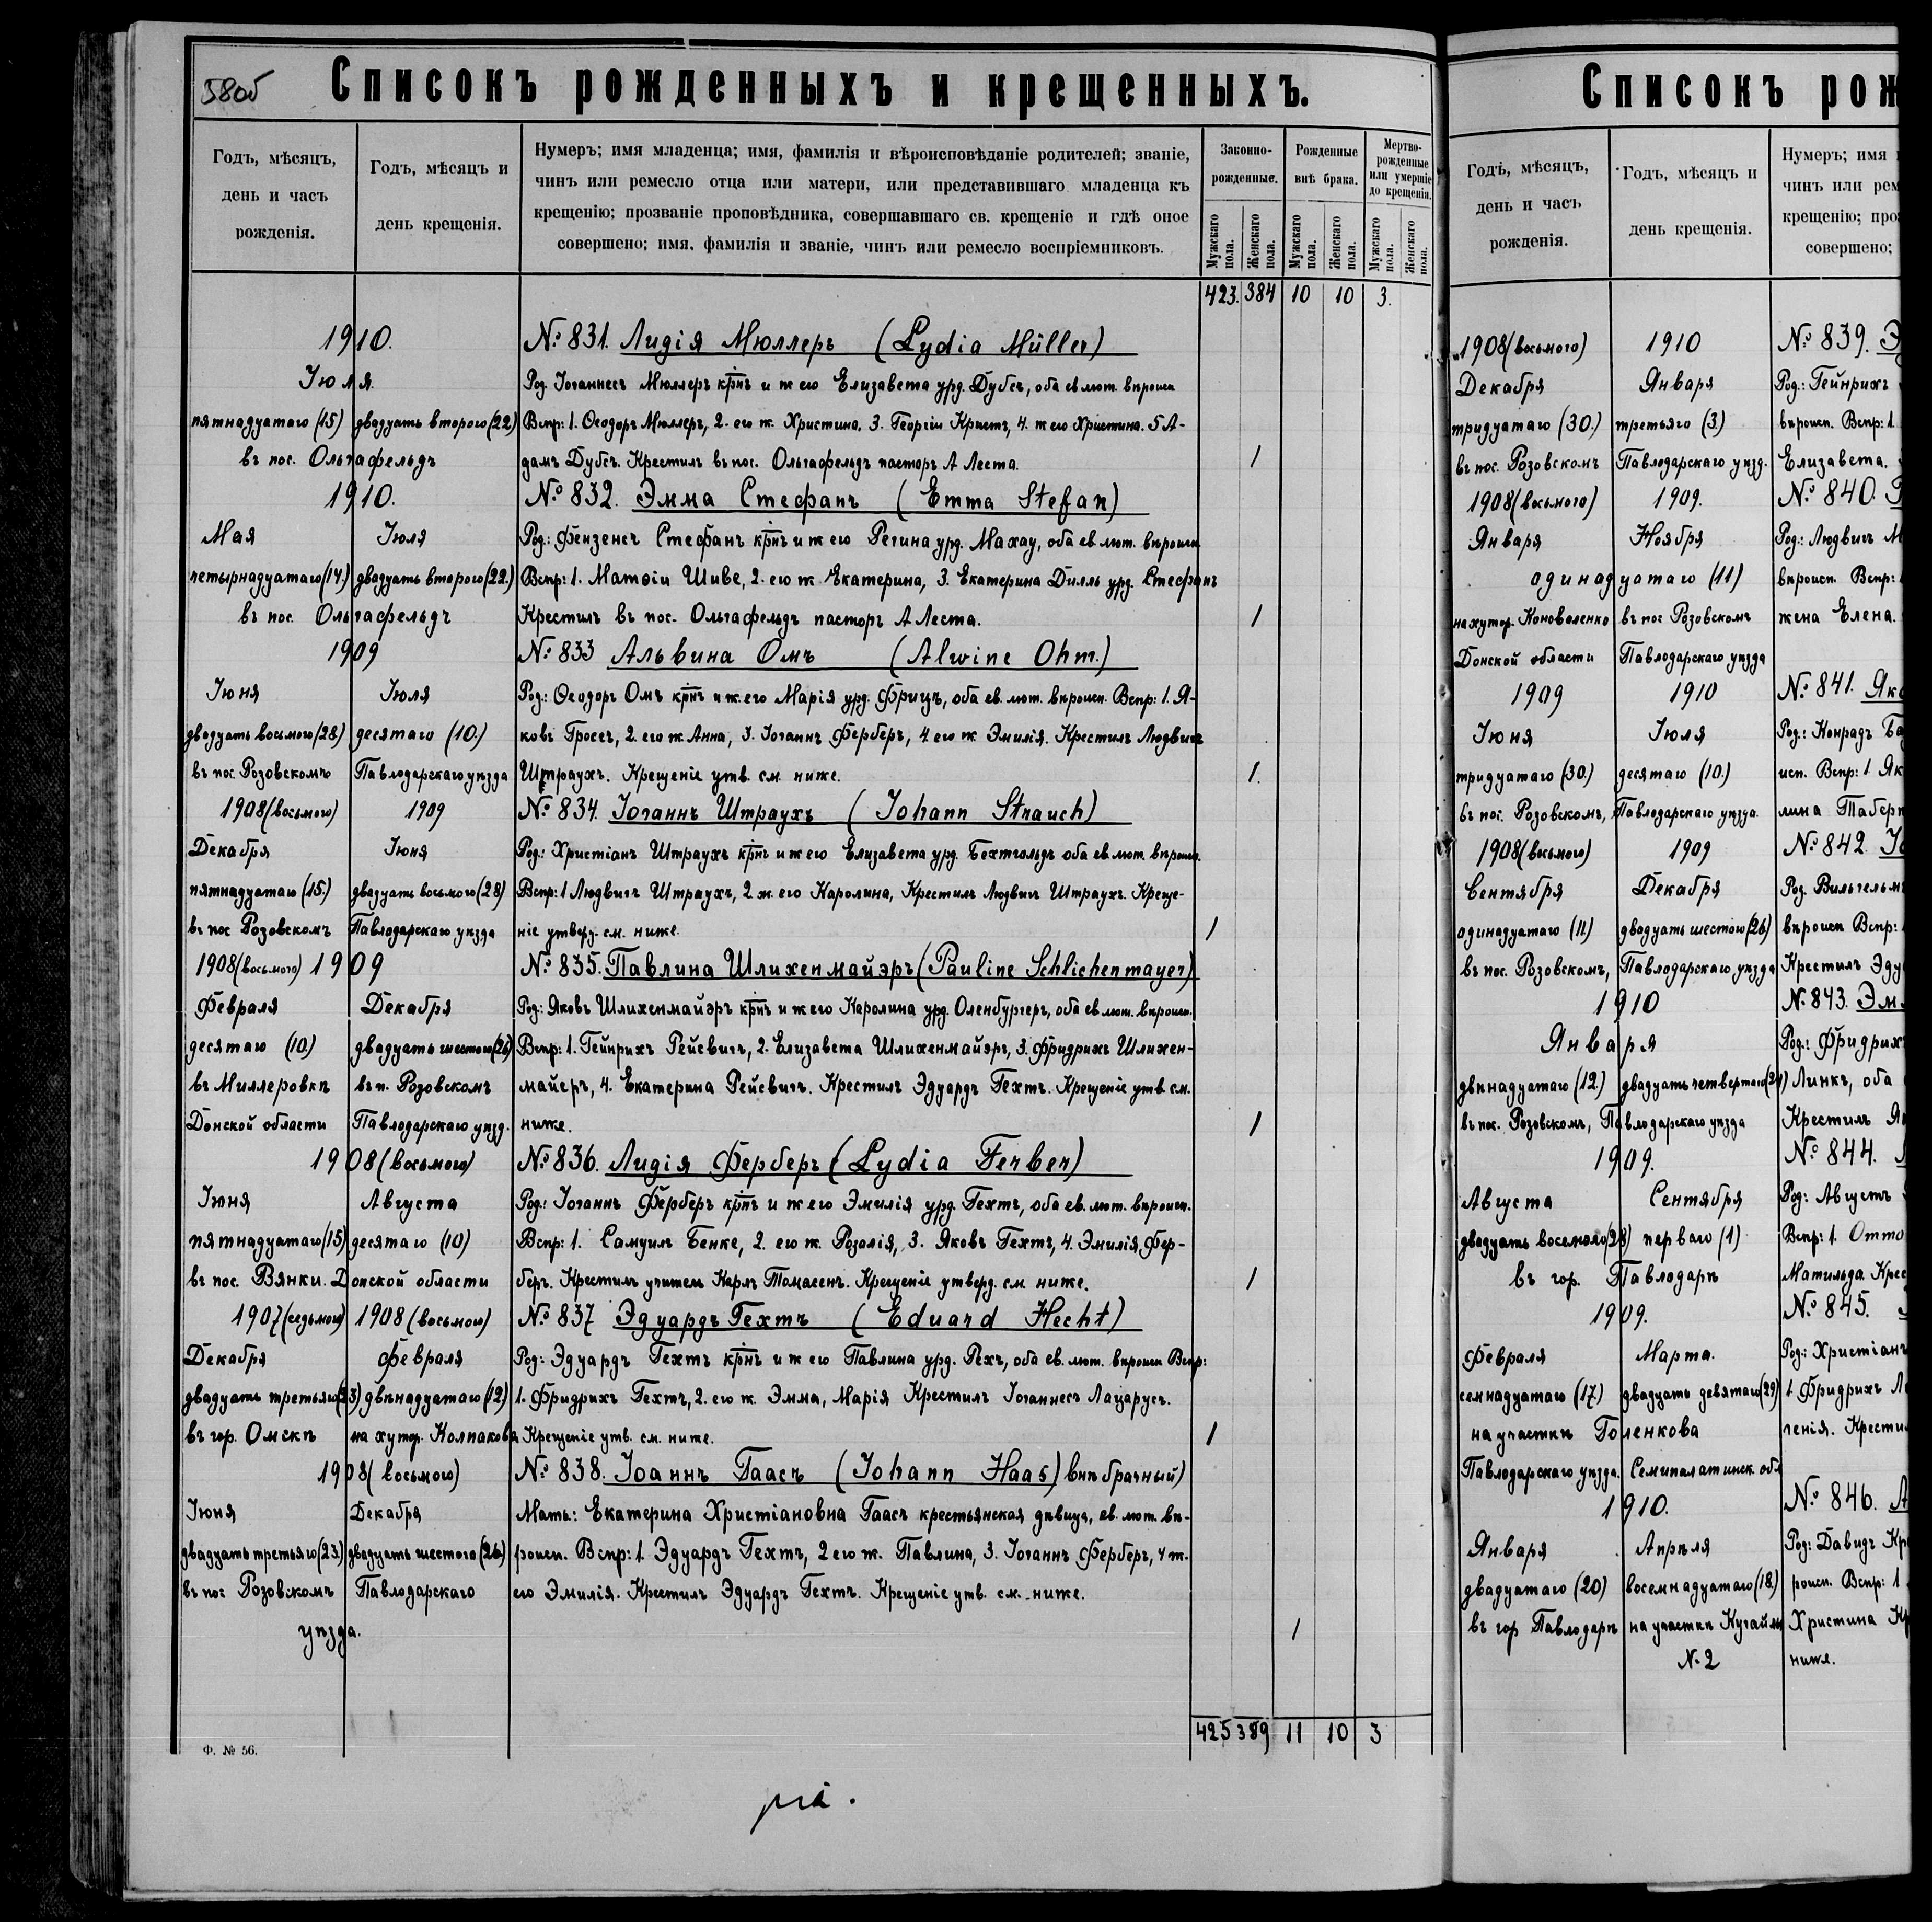 580б
Списокъ рожденныхъ и крещенныхъ.
Годъ, мѣсяцъ, день и часъ рожденія.
Годъ, мѣсяцъ и день крещенія.
Нумеръ; имя младенца; имя, фамилія и вѣроисповѣданіе родителей; званіе,
чинъ или ремесло отца или матери, или представившаго младенца къ
крещенію; прозваніе проповѣдника, совершавшаго св. крещеніе и гдѣ оное
совершено; имя, фамилія и званіе, чинъ или ремесло воспріемниковъ.
Законно-рожденные.
Рожденные внѣ брака.
Мертво-рожденные или умершіе до крещенія.
Мужскаго пола.
Женскаго пола.
Мужскаго пола.
Женскаго пола.
Мужскаго пола.
Женскаго пола.
423. 384 10 10 3.
1910. №831. Лидія Мюллеръ (Lydia Müller)
Іюля. Род. Іоганнесъ Мюллеръ крнъ и ж его Елизавета урд. Дубсъ, оба ев лют. вѣроисп
пятнадцатаго (15) двадцать второго (22) Вспр: 1. Ѳеодоръ Мюллеръ, 2. его ж. Христина. 3. Георгій Кристъ, 4. ж его Христина. 5 А-
въ пос. Ольгафельдъ дамъ Дубсъ. Крестилъ въ пос. Ольгафельдъ пасторъ А Леста. 1
1910. №832. Эмма Стефанъ (Emma Stefan)
Мая Іюля Род.: Фензенсъ Стефанъ крнъ и ж его Регина урд. Махау, оба ев лют. вѣроисп
четырнадцатаго (14.) двадцать второго (22.) Вспр: 1. Матѳій Шиве, 2. его ж Екатерина, 3. Екатерина Дилль урд. Стефанъ
въ пос. Ольгафельдъ Крестилъ въ пос. Ольгафельдъ пасторъ А Леста. 1
1909 №833 Альвина Омъ (Alwine Ohm.)
Іюня Іюля Род.: Ѳеодоръ Омъ крнъ и ж.его Марія урд. Фрицъ, оба ев. лют. вѣроисп. Вспр: 1. Я-
двадцать восьмого (28) десятаго (10.) ковъ Гроссъ, 2. его ж Анна, 3. Іоганнъ Ферберъ, 4 его ж Эмилія. Крестилъ Людвигъ
въ пос. Розовскомъ Павлодарскаго уѣзда Штраухъ. Крещеніе утв. см. ниже. 1.
1908 (восьмого) 1909 №834. Іоганнъ Штраухъ (Johann Strauch)
Декабря Іюня Род.: Христіанъ Штраухъ крнъ и ж его Елизавета урд. Бехтгольдъ оба ев. лют. вѣроисп.
пятнадцатаго (15.) двадцать восьмого (28) Вспр: 1 Людвигъ Штраухъ, 2 ж. его Каролина, Крестилъ Людвигъ Штраухъ. Креще-
въ пос Розовскомъ Павлодарскаго уѣзда ніе утверд. см. ниже. 1
1908 (восьмого) 1909 №835. Павлина Шлихенмайэръ (Pauline Schlichenmayer)
Февраля Декабря Род: Яковъ Шлихенмайэръ крнъ и ж его Каролина урд. Оленбургеръ, оба ев лют. вѣроисп.
десятаго (10.) двадцать шестого (26) Вспр: 1. Гейнрихъ Рейсвигъ, 2. Елизавета Шлихенмайэръ, 3. Фридрихъ Шлихен-
въ Миллеровкѣ въ п. Розовскомъ майеръ, 4. Екатерина Рейсвигъ. Крестилъ Эдуардъ Гехтъ. Крещеніе утв. см.
Донской области Павлодарскаго уѣзд. ниже. 1
1908 (восьмого) №836. Лидія Ферберъ (Lydia Ferber)
Іюня Августа Род.: Іоганнъ Ферберъ крнъ и ж его Эмилія урд. Гехтъ, оба ев. лют. вѣроисп.
пятнадцатаго (15) десятаго (10) Вспр: 1. Самуилъ Бенке, 2. его ж. Розалія, 3. Яковъ Гехтъ, 4. Эмилія Фер-
въ пос. Вянки. Донской области беръ. Крестилъ учитель Карлъ Томасенъ. Крещеніе утверд. см ниже. 1
1907 (седьмого) 1908 (восьмого) №837 Эдуардъ Гехтъ (Eduard Hecht)
Декабря Февраля Род: Эдуардъ Гехтъ крнъ и ж его Павлина урд. Рехъ, оба ев. лют. вѣроисп Вспр:
двадцать третьяго (23) двѣнадцатаго (12) 1. Фридрихъ Гехтъ, 2. его ж. Эмма, Марія Крестилъ Іоганнесъ Лацарусъ.
въ гор. Омскѣ на хутор. Колпакова Крещеніе утв. см. ниже. 1
1908 (восьмого) №838. Іоаннъ Гаасъ (Johann Haas) внѣбрачный)
Іюня Декабря Мать: Екатерина Христіановна Гаасъ крестьянская дѣвица, ев. лют. вѣ-
двадцать третьяго (23.) двадцать шестого (26.) роисп. Вспр: 1. Эдуардъ Гехтъ, 2 его ж. Павлина, 3. Іоганнъ Ферберъ, 4 ж.
въ пос Розовскомъ Павлодарскаго его Эмилія. Крестилъ Эдуардъ Гехтъ. Крещеніе утв. см. ниже.
уѣзда. 1
425 389 11 10 3
Ф. № 56.
Списокъ рож
Годъ, мѣсяцъ, день и часъ рожденія.
Годъ, мѣсяцъ и день крещенія.
Нумеръ; имя
чинъ или рем
крещенію; про
совершено;
1908 (восьмого) 1910 №839. Э
Декабря Января Род.: Гейнрихъ
тридцатаго (30.) третьяго (3.) вѣроисп. Вспр: 1.
въ пос. Розовскомъ Павлодарскаго уѣзд. Елизавета.
1908 (восьмого) 1909. №840.
Января Ноября Род.: Людвигъ М
одинадцатаго (11) вѣроисп. Вспр:
на хутор. Коноваленко въ пос Розовскомъ жена Елена.
Донской области Павлодарскаго уѣзда
1909 1910 №841. Яко
Іюня Іюля Род.: Конрадъ Ба
тридцатаго (30.) десятаго (10.) исп. Вспр: 1 Як
въ пос. Розовскомъ, Павлодарскаго уѣзда. лина Таберн
1908 (восьмого) 1909 №842. Іо
Сентября Декабря Род. Вильгельмъ
одинадцатаго (11.) двадцать шестого (26) вѣроисп Вспр:
въ пос. Розовскомъ, Павлодарскаго уѣзда Крестилъ Эду
1910 №843. Эм
Января Род.: Фридрихъ
двѣнадцатаго (12.) двадцать четвертаго (24) Линкъ, оба
въ пос. Розовскомъ, Павлодарскаго уѣзда Крестилъ Як
1909. №844.
Августа Сентября Род: Августъ
двадцать восемого (28) перваго (1) Вспр: 1. Отто
въ гор. Павлодарѣ Матильда. Крес
1909. №845.
Февраля Марта. Род.: Христіанъ
семнадцатаго (17) двадцать девятаго (29) 1. Фридрихъ Ле
на участкѣ Голенкова генія. Крести
Павлодарскаго уѣзда. Семипалатинск. обл
1910. №846. А
Января Апрѣля Род: Давидъ Кр
двадцатаго (20) восемнадцатаго (18.) роисп. Вспр: 1
въ гор Павлодарѣ на участкѣ Кучаймъ Христина Кр
№2 ниже.